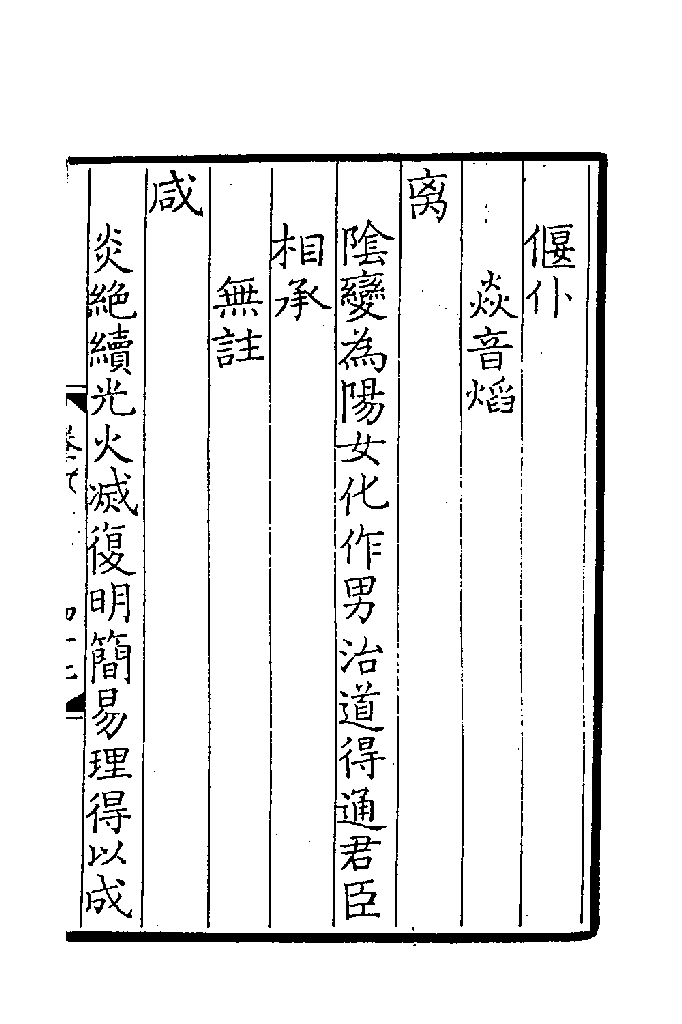 偃仆
焱音熖
离
陰變為陽女化作男治道得通君臣
相承
無註
咸
炎絶續光火滅復明簡易理得以成